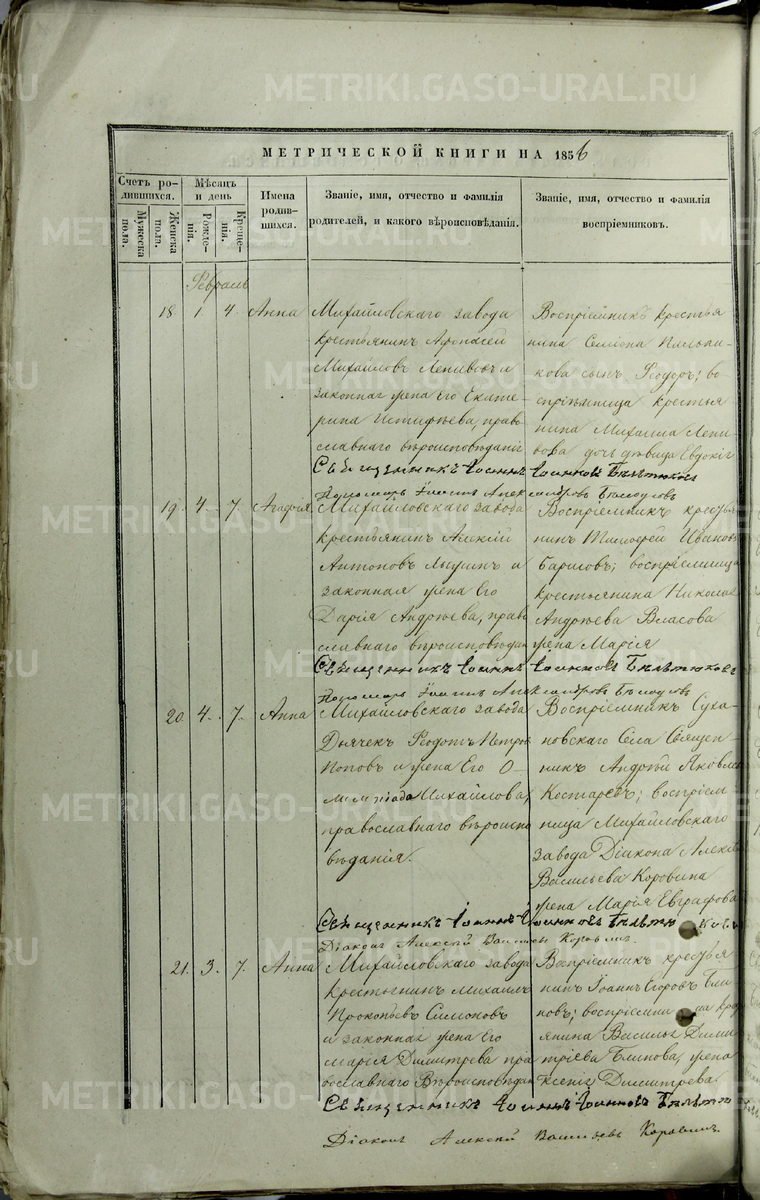 METRIKI.GASO-URAL.RU
МЕТРИЧЕСКОЙ КНИГИ НА 1856
Счетъ ро-
дившихся.
Мужеска
пола.
Женска
пола.
Мѣсяцъ
и день
Рожде-
нія.
Креще-
нія.
Имена
родив-
шихся.
Званіе, имя, отчество и фамилія
родителей, и какого вѣроисповѣданія.
Званіе, имя, отчество и фамилія
воспріемниковъ.
Февраль
18 1. 4. Анна
Михайловскаго завода
крестьянинъ Афонасей
Михайловъ
законная жена Его Екате-
рина право
славнаго вѣроисповѣданія
Воспріемникъ крестья
нина Семена
кова сынъ Феодоръ; во
спріемница крестья
нина Михаила Лепи
хова дочь дѣвица Евдокія
Священникъ Іоаннъ Іоанновъ
Пономарь Іоаннъ Александровъ
19. 4. 7. Агафія
Михайловскаго завода
крестьянинъ Алексій
Антоновъ и
законная жена Его
Дарія Андреева, право
славнаго вѣроисповѣдан
Воспріемникъ крестья
нинъ Тимофей Ивановъ
воспріемница
крестьянина Николая
Андреева Власова
жена Марія
Священникъ Іоаннъ Іоанновъ
Пономарь Іоаннъ Александровъ
20. 4. 7. Анна
Михайловскаго завода
Дьячекъ Феодотъ Петровъ
Поповъ и жена Его О-
лимпіада Михайлова,
православнаго вѣроиспо
вѣданія.
Воспріемникъ Суха-
новскаго Села Священ-
никъ Андрей Яковлевъ
Костаревъ; воспріем-
ница Михайловскаго
завода Діакона Алексія
Васильева Коровина
жена Марія Евграфова
Священникъ Іоаннъ Іоанновъ
Діаконъ Алексій Васильевъ Коровинъ.
21. 3. 7. Анна
Михайловскаго завода
крестьянинъ Михаилъ
Прокопьевъ Симоновъ
и законная жена Его
Марія Димитрева пра
вославнаго Вѣроисповѣдан
Воспріемникъ крестья
нинъ Іоаннъ Егоровъ Бли
новъ; воспріемни ца крес
янина Василья Дими
тріева Блинова, жена
Ксенія Димитрева
Священникъ Іоаннъ Іоанновъ
Діаконъ Алексій Васильевъ Коровинъ